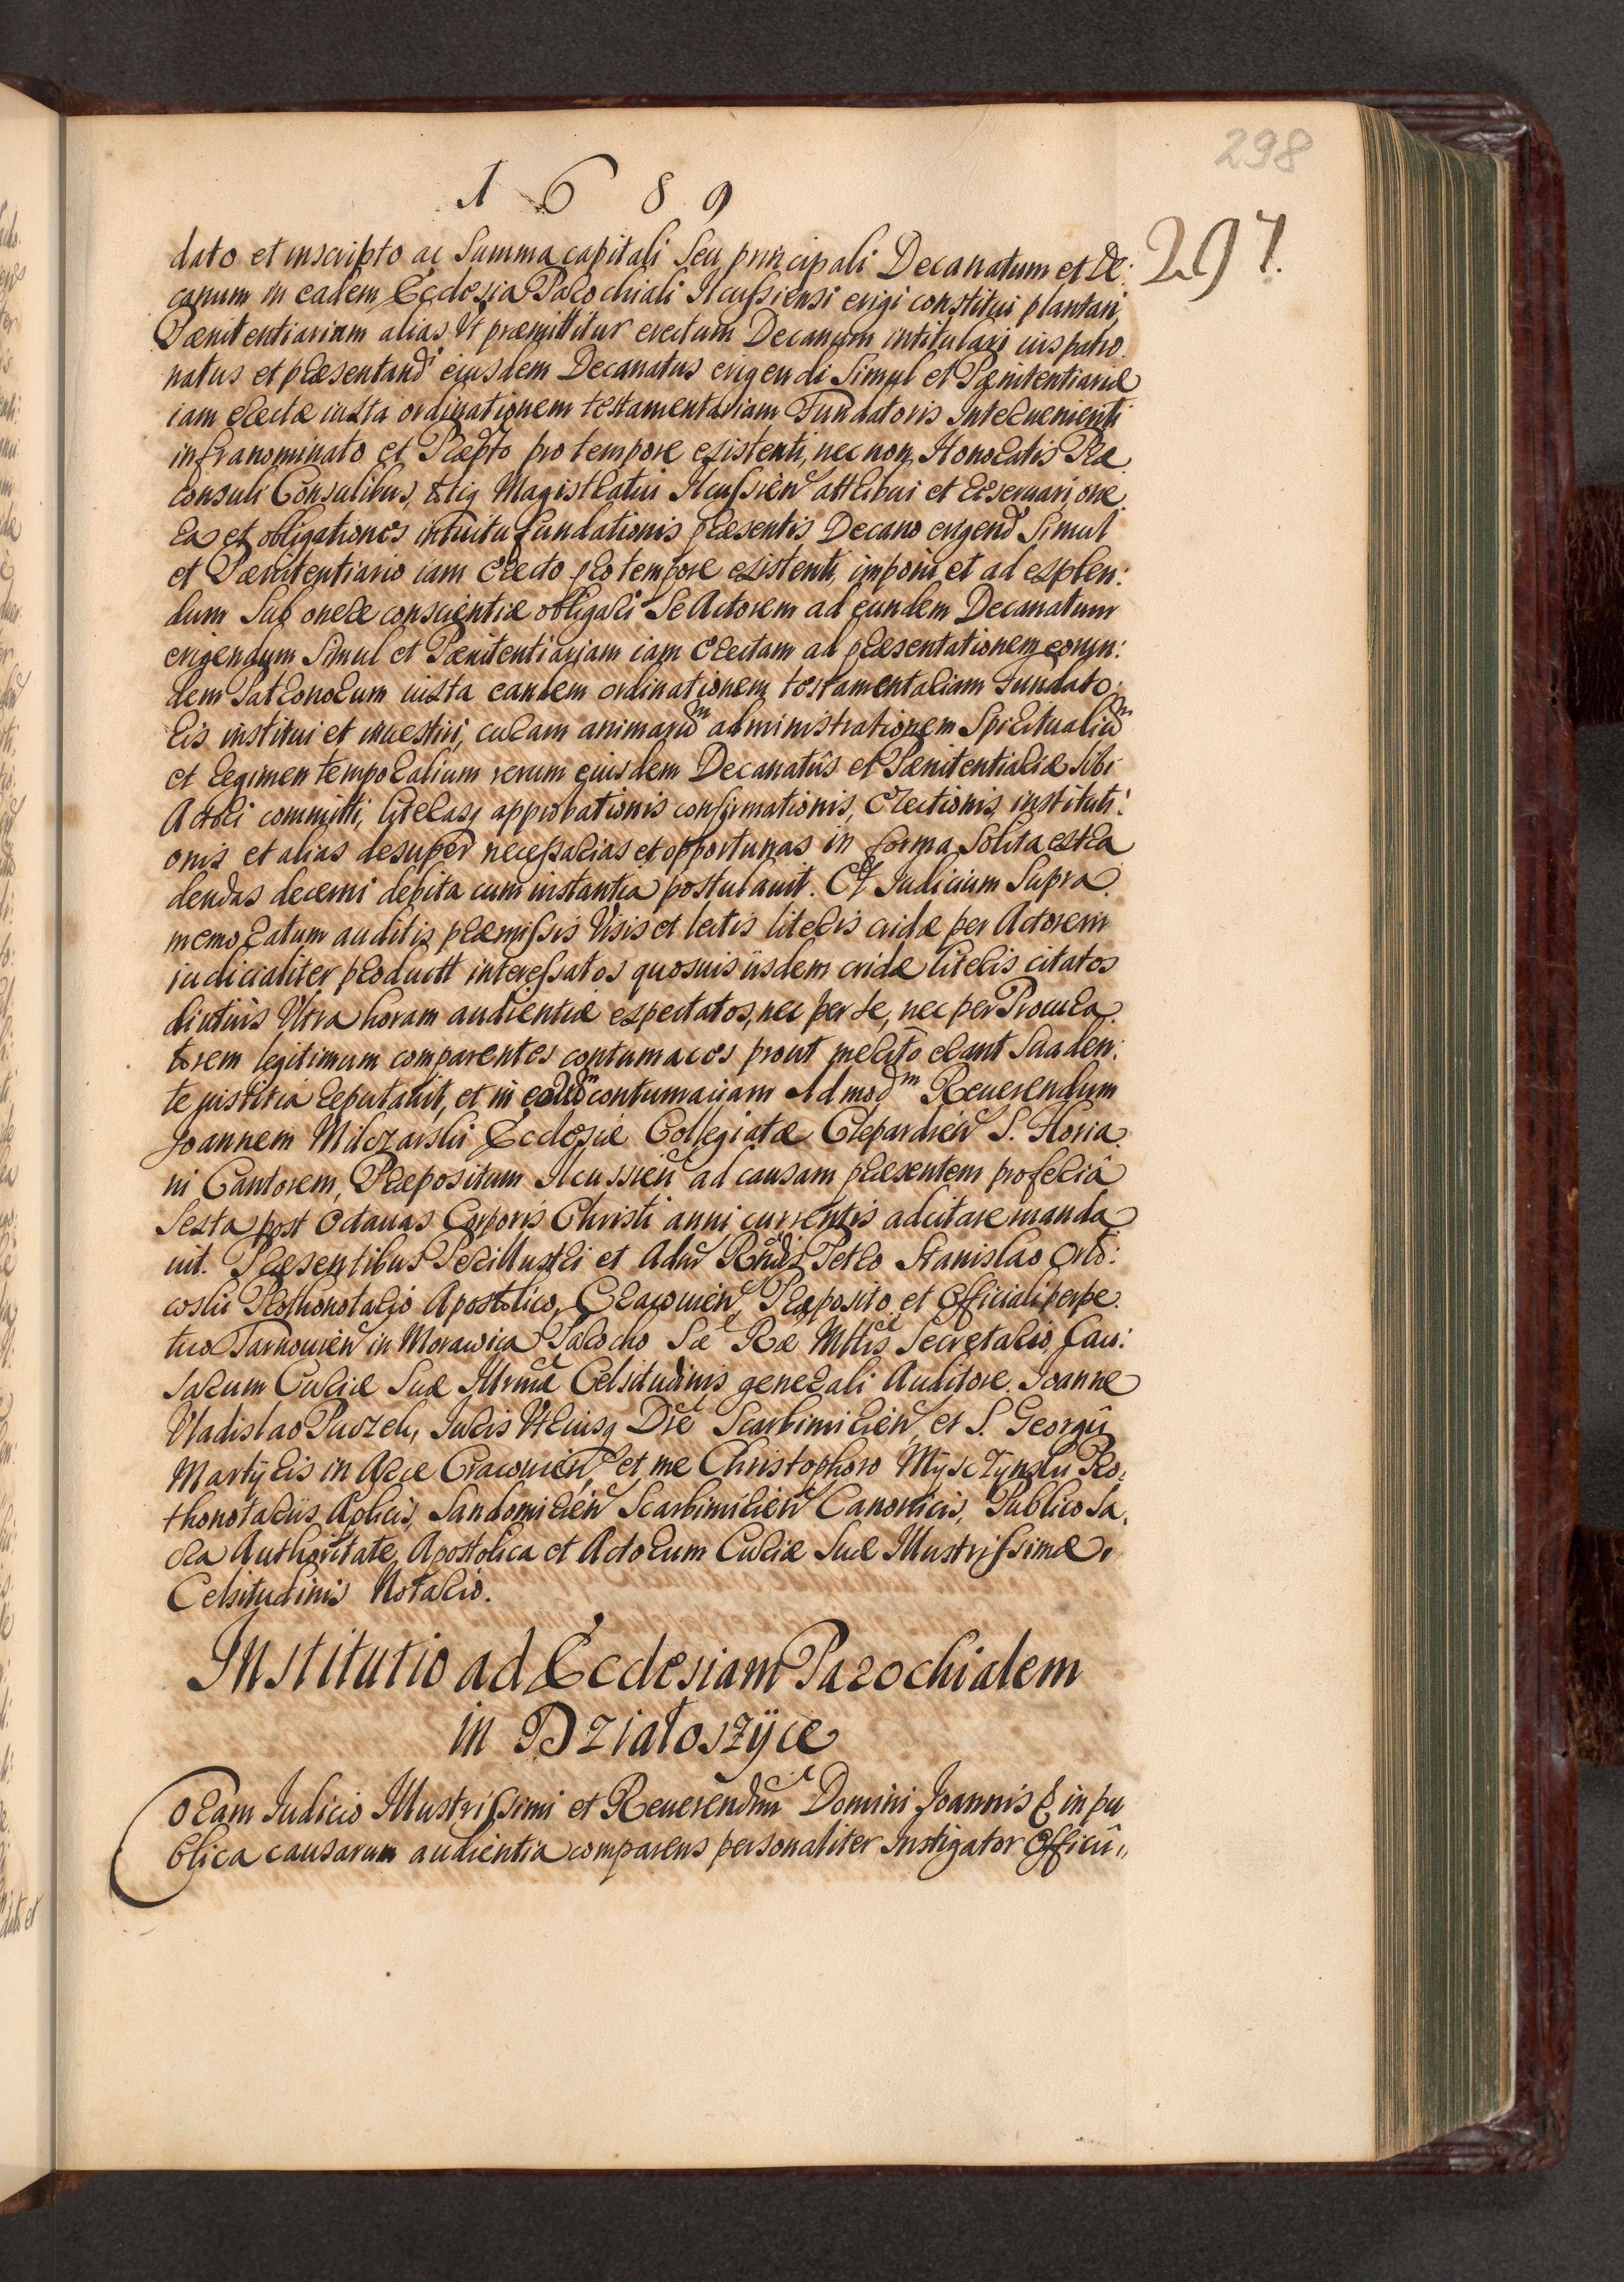 298
1689
297.
dato et inscripto ac Summa capitali Seu principali Decanatum et De:
canum in eadem Ecclesia Parochiali Ilcussiensi erigi constitui plantari,
Pænitentiarium alias Vt præmittitur erectum Decanum intitulari iuspatro.
natus et præsentand' eiusdem Decanatus erigendi Simul et Pænitentiariæ
iam erectæ iuxta ordinationem testamentariam Fundatoris Interuenienti
infranominato et Præpto pro tempore existenti, nec non Honoratis Præ.
consuli Consulibus, totiq Magistratui Ilcussien attribui et reseruari, one.
ra et obligationes intuitu fundationis præsentis Decano erigend' Simul
et Pænitentiario iam erecto pro tempore existenti, imponi, et ad explen:
dum Sub onere conscientiæ obligari Se Actorem ad eundem Decanatum
erigendum Simul et Pænitentiariam iam erectam ad præsentationem eorun:
dem Patronorum iuxta eandem ordinationem testamentariam Fundato:
ris institui et inuestiri, curam animarum administrationem Spiritualium
et regimen temporalium rerum eiusdem Decanatus et Pænitentiariæ Sibi
Actori committi, literasq approbationis confirmationis, Erectionis, instituti:
onis et alias desuper necessarias et opportunas in forma Solita extra
dendas decerni debita cum instantia postulauit. Et Iudicium Supra.
memoratum auditis præmissis Visis et lectis literis cridæ per Actorem
iudicialiter productt interessatos quosuis iisdem cridæ literis citatos
diutius Vltra horam audientiæ expectatos, nec per se, nec per Procura.
torem legitimum comparentes contumaces prout merito erant Suaden:
te iustitia reputauit, et in eorum contumaciam Admodm Reuerendum
Joannem Milczarski Ecclesiæ Collegiatæ Clepardien S. Floria.
ni Cantorem, Præpositum Ilcussien ad causam præsentem pro feria
Sexta post Octauas Corporis Christi anni currentis adcitare manda
uit. Præsentibus Perillustri et Adm Rndis Petro Stanislao Orło:
coski Prothonotario Apostolico, Cracouien, Præposito et Officiali perpe.
tuo Tarnouien in Morawica Parocho Sæ Ræ Mttis Secretario, Cau:
sarum Curiæ Suæ Illrmæ Celsitudinis generali Auditore. Ioanne
Vladislao Puczek, Iuris Vtriusq Dre Scarbimirien, et S. Georgii
Martyris in Arce Cracouien, et me Christophoro Mysczynski Pro.
thonotariis Aplicis, Sandomirien Scarbimirien Canonicis, Publico Sa.
cra Authoritate Apostolica et Actorum Curiæ Suæ Illustrissimæ
Celsitudinis Notario.
Institutio ad Ecclesiam Parochialem
in Działoszÿce
Coram Iudicio Illustrissimi et Reuerendmi Domini Joannis & in pu
blica causarum audientia comparens personaliter Instigator Officii